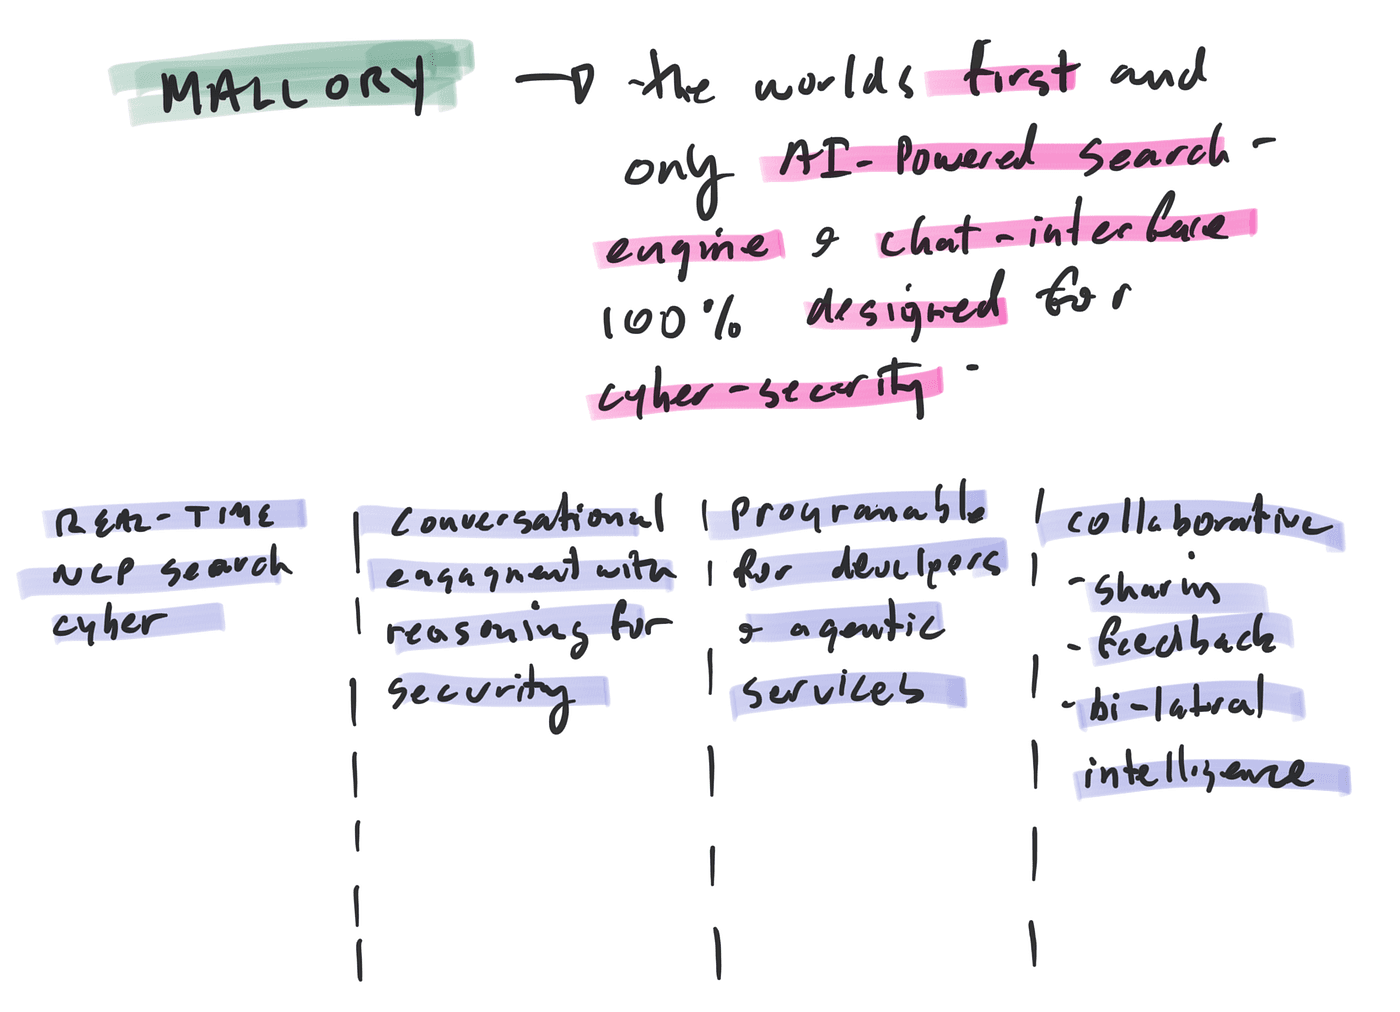 MALLORY → the worlds first and
only AI-Powered search-
engine & chat-interface
100% designed for
cyber-security -
REAL-TIME
NLP search
cyber
Conversational
engagment with
reasoning for
security
Programable
for develpers
& agentic
services
collaborative
- sharin
- feedback
- bi-latral
intelligence